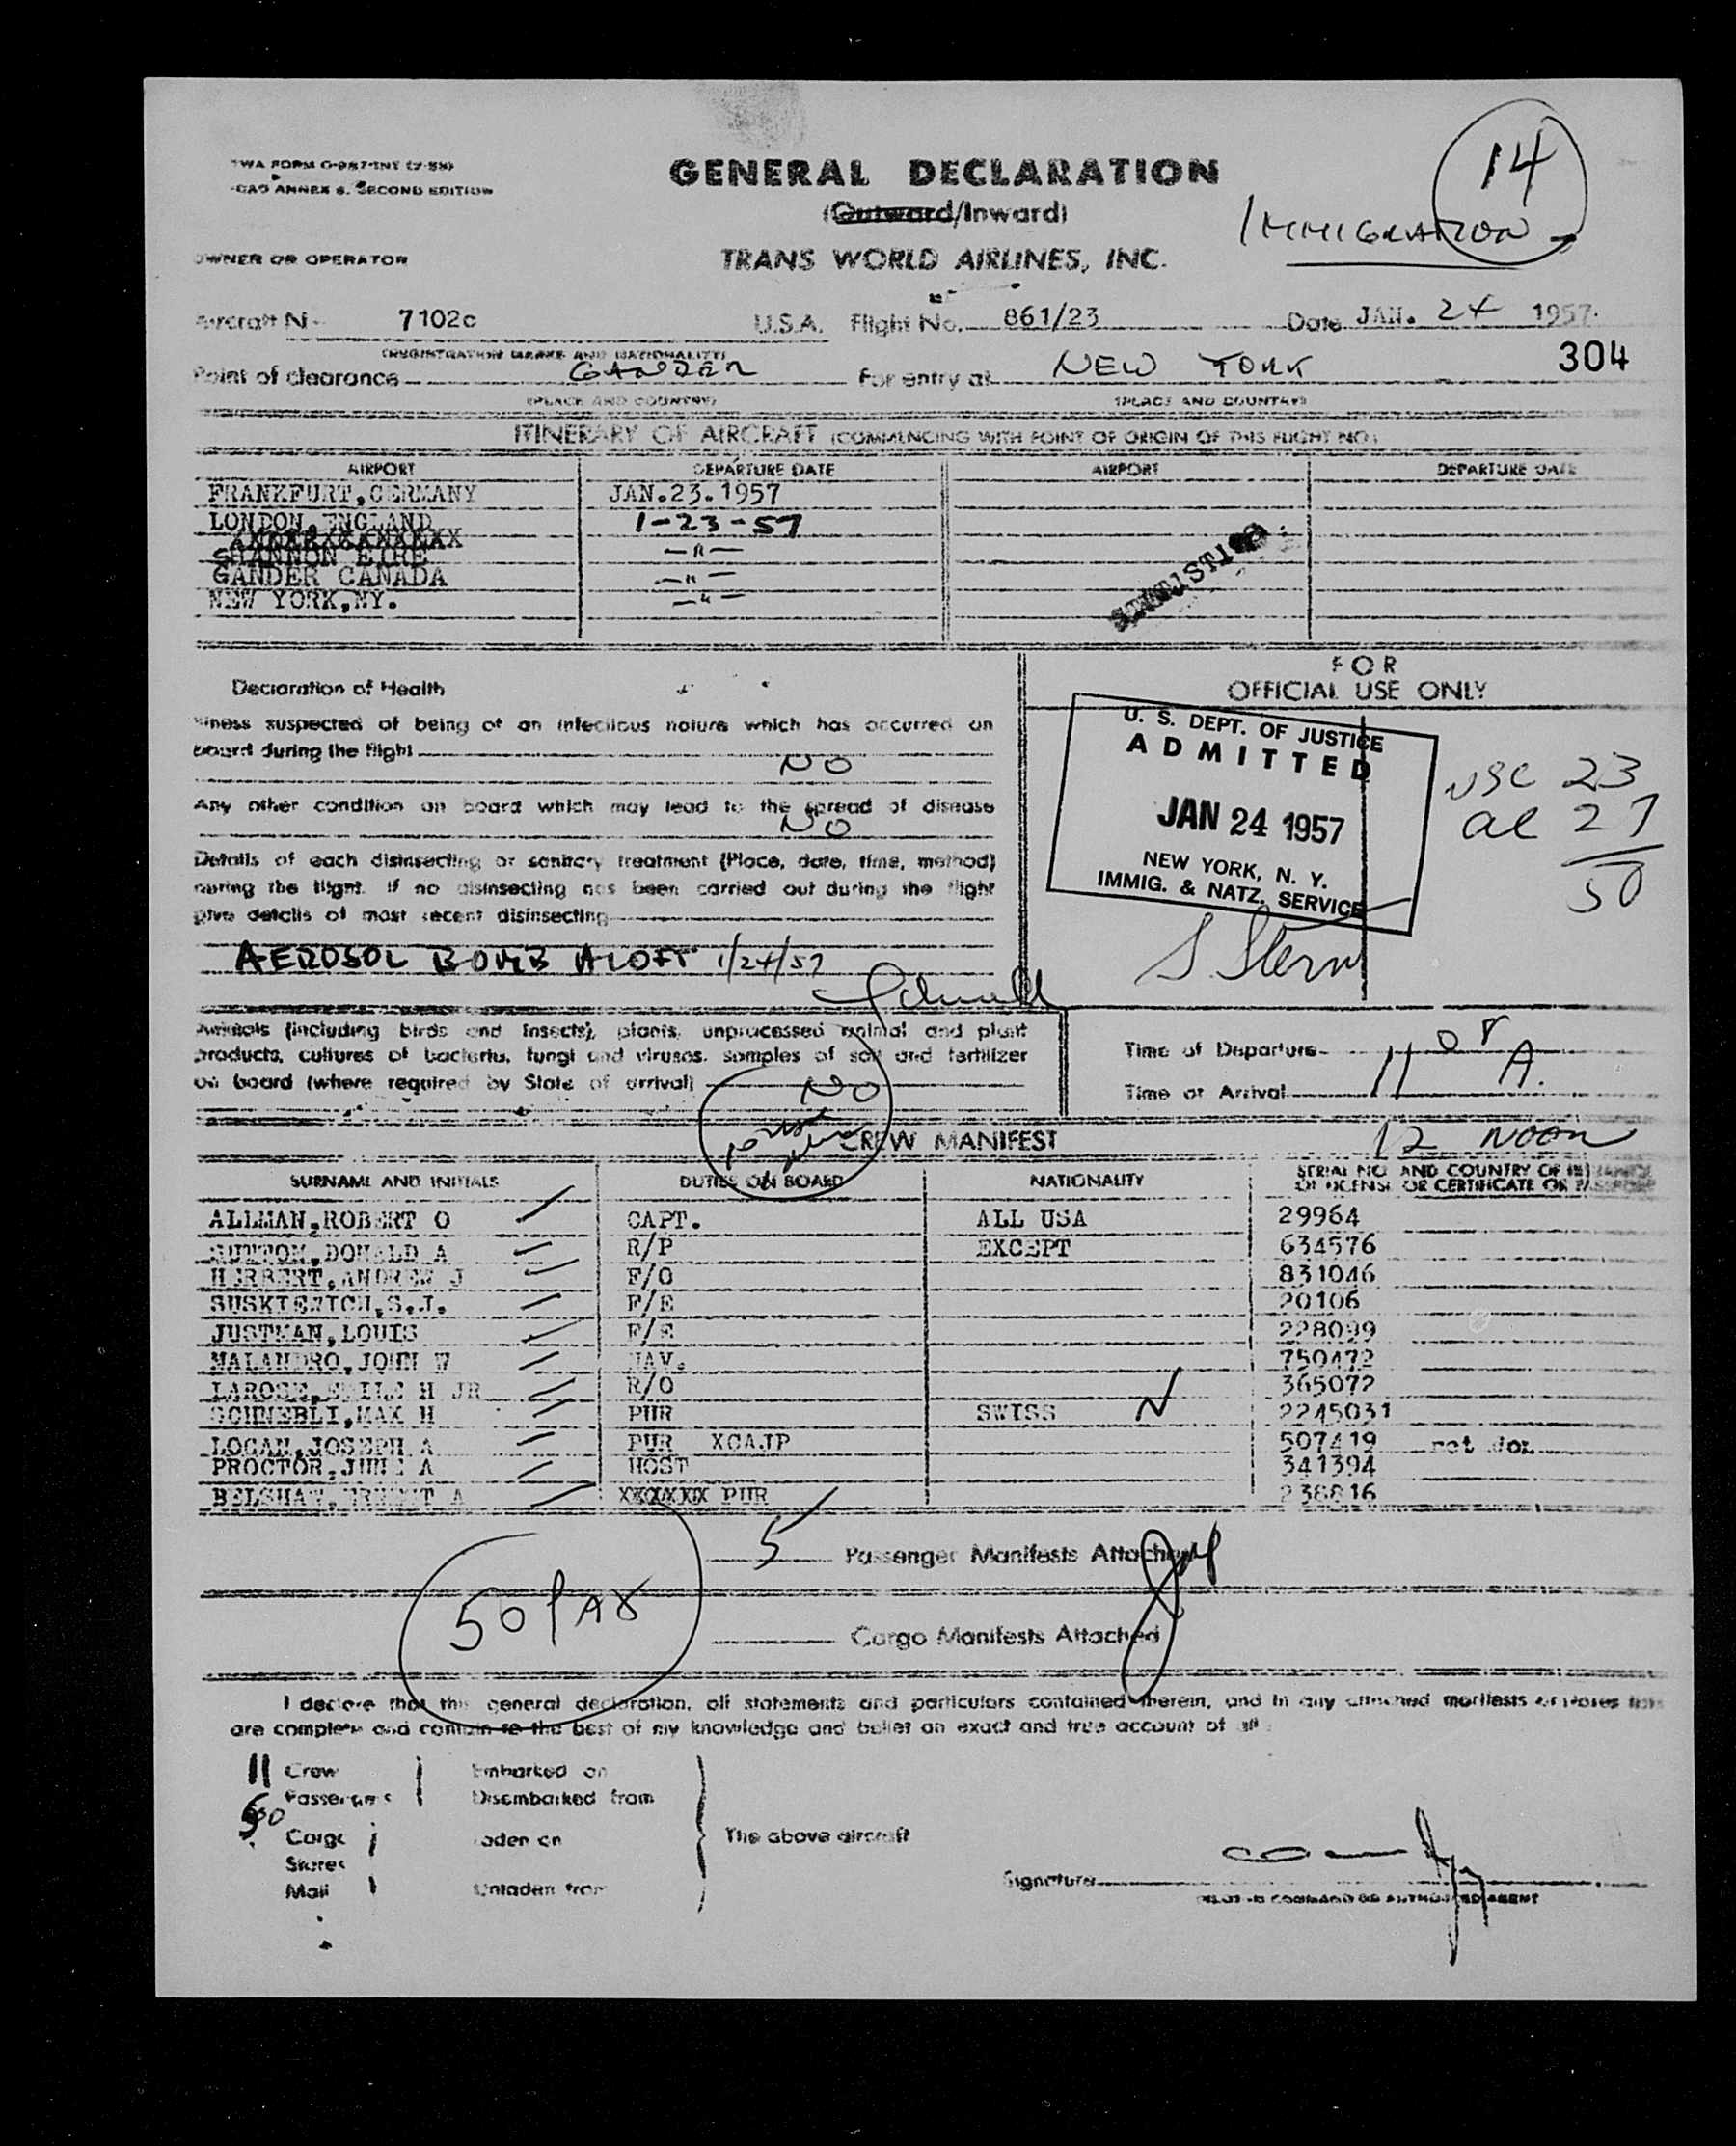 TWA FORM O-987-INT (7-55)
ICAO ANNEX 9. SECOND EDITION
GENERAL DECLARATION
(Outward/Inward)
14
IMMIGRATION
OWNER OR OPERATOR
TRANS WORLD AIRLINES, INC.
Aircraft No. 7102c U.S.A. Flight No. 861/23 Date JAN. 24 1957.
(REGISTRATION MARKS AND NATIONALITY)
304
Point of clearance GANDER For entry at NEW YORK
(PLACE AND COUNTRY) (PLACE AND COUNTRY)
ITINERARY OF AIRCRAFT (COMMENCING WITH POINT OF ORIGIN OF THIS FLIGHT NO.)
AIRPORT DEPARTURE DATE AIRPORT DEPARTURE DATE
FRANKFURT,GERMANY JAN.23.1957
LONDON,ENGLAND 1-23-57
SHANNON EIRE —"—
GANDER CANADA —"—
NEW YORK,NY. —"—
STATISTICS
Declaration of Health
Illness suspected of being of an infectious nature which has occurred on
board during the flight
NO
Any other condition on board which may lead to the spread of disease
NO
Details of each disinsecting or sanitary treatment (Place, date, time, method)
during the flight. If no disinsecting has been carried out during the flight
give details of most recent disinsecting
AEROSOL BOMB ALOFT 1/24/57
FOR
OFFICIAL USE ONLY
U. S. DEPT. OF JUSTICE
ADMITTED
JAN 24 1957
NEW YORK, N. Y.
IMMIG. & NATZ. SERVICE
S. Stern
USC 23
al 27
50
Animals (including birds and insects), plants, unprocessed animal and plant
products, cultures of bacteria, fungi and viruses, samples of soil and fertilizer
on board (where required by State of arrival)
NO
Time of Departure
Time of Arrival
11 08 A.
12 NOON
CREW MANIFEST
SURNAME AND INITIALS DUTIES ON BOARD NATIONALITY SERIAL NO. AND COUNTRY OF ISSUANCE
OF LICENSE OR CERTIFICATE OR PASSPORT
ALLMAN,ROBERT O CAPT. ALL USA 29964
SUTTON,DONALD A R/P EXCEPT 634576
HERBERT,ANDREW J F/O 831046
SUSKIEWICH,S.J. F/E 20106
JUSTMAN,LOUIS F/E 228099
MALANDRO,JOHN W NAV. 750472
LAROSE,EMILE H JR R/O 365072
SCHNEBLI,MAX H PUR SWISS 2245031
LOGAN,JOSEPH A PUR XCAJP 507419
PROCTOR,JUNE A HOST 341394
BELSHAW,ERNEST A XXXXXXX PUR 238816
5 Passenger Manifests Attached
50 PAX
Cargo Manifests Attached
I declare that this general declaration, all statements and particulars contained therein, and in any attached manifests
are complete and contain to the best of my knowledge and belief an exact and true account of all
11 Crew Embarked on
50 Passengers Disembarked from
Cargo Laden on The above aircraft
Stores
Mail Unladen from
Signature
PILOT IN COMMAND OR AUTHORIZED AGENT